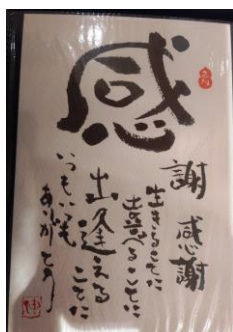 感
謝 感謝
生きることに
喜べることに
出逢えることに
いつもいつも
ありがとう